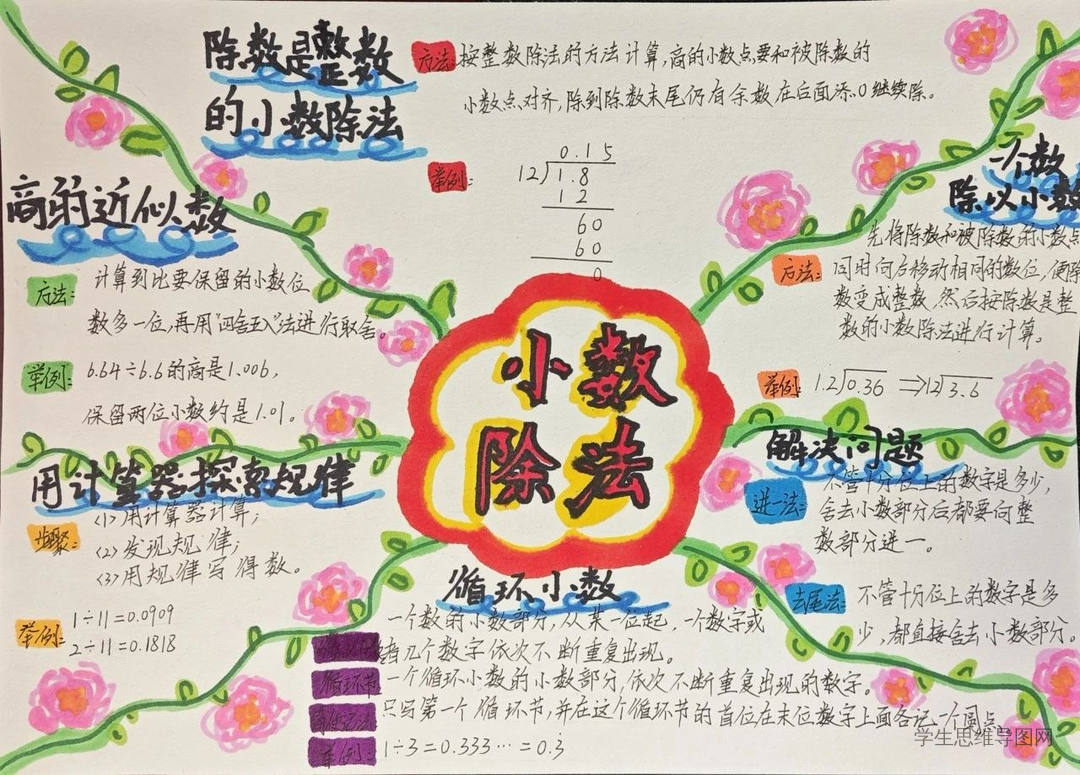 除数是整数
的小数除法
方法:
按整数除法的方法计算,商的小数点要和被除数的
小数点对齐,除到除数末尾仍有余数在后面添0继续除。
举例:
0.15
12)1.8
12
60
60
0
商的近似数
方法:
计算到比要保留的小数位
数多一位,再用"四舍五入"法进行取舍。
举例:
6.64÷6.6的商是1.006,
保留两位小数约是1.01。
一个数
除以小数
方法:
先将除数和被除数的小数点
同时向右移动相同的数位,使除
数变成整数,然后按除数是整
数的小数除法进行计算。
举例:
1.2)0.36 ⇒12)3.6
小数
除法
用计算器探索规律
步骤:
<1>用计算器计算;
<2>发现规律;
<3>用规律写得数。
举例:
1÷11=0.0909
2÷11=0.1818
解决问题
进一法:
不管十分位上的数字是多少,
舍去小数部分后都要向整
数部分进一。
去尾法:
不管十分位上的数字是多
少,都直接舍去小数部分。
循环小数
一个数的小数部分,从某一位起,一个数字或
者几个数字依次不断重复出现。
循环节
一个循环小数的小数部分,依次不断重复出现的数字。
只写第一个循环节,并在这个循环节的首位在末位数字上面各记一个圆点。
举例:
1÷3=0.333…=0.3
学生思维导图网